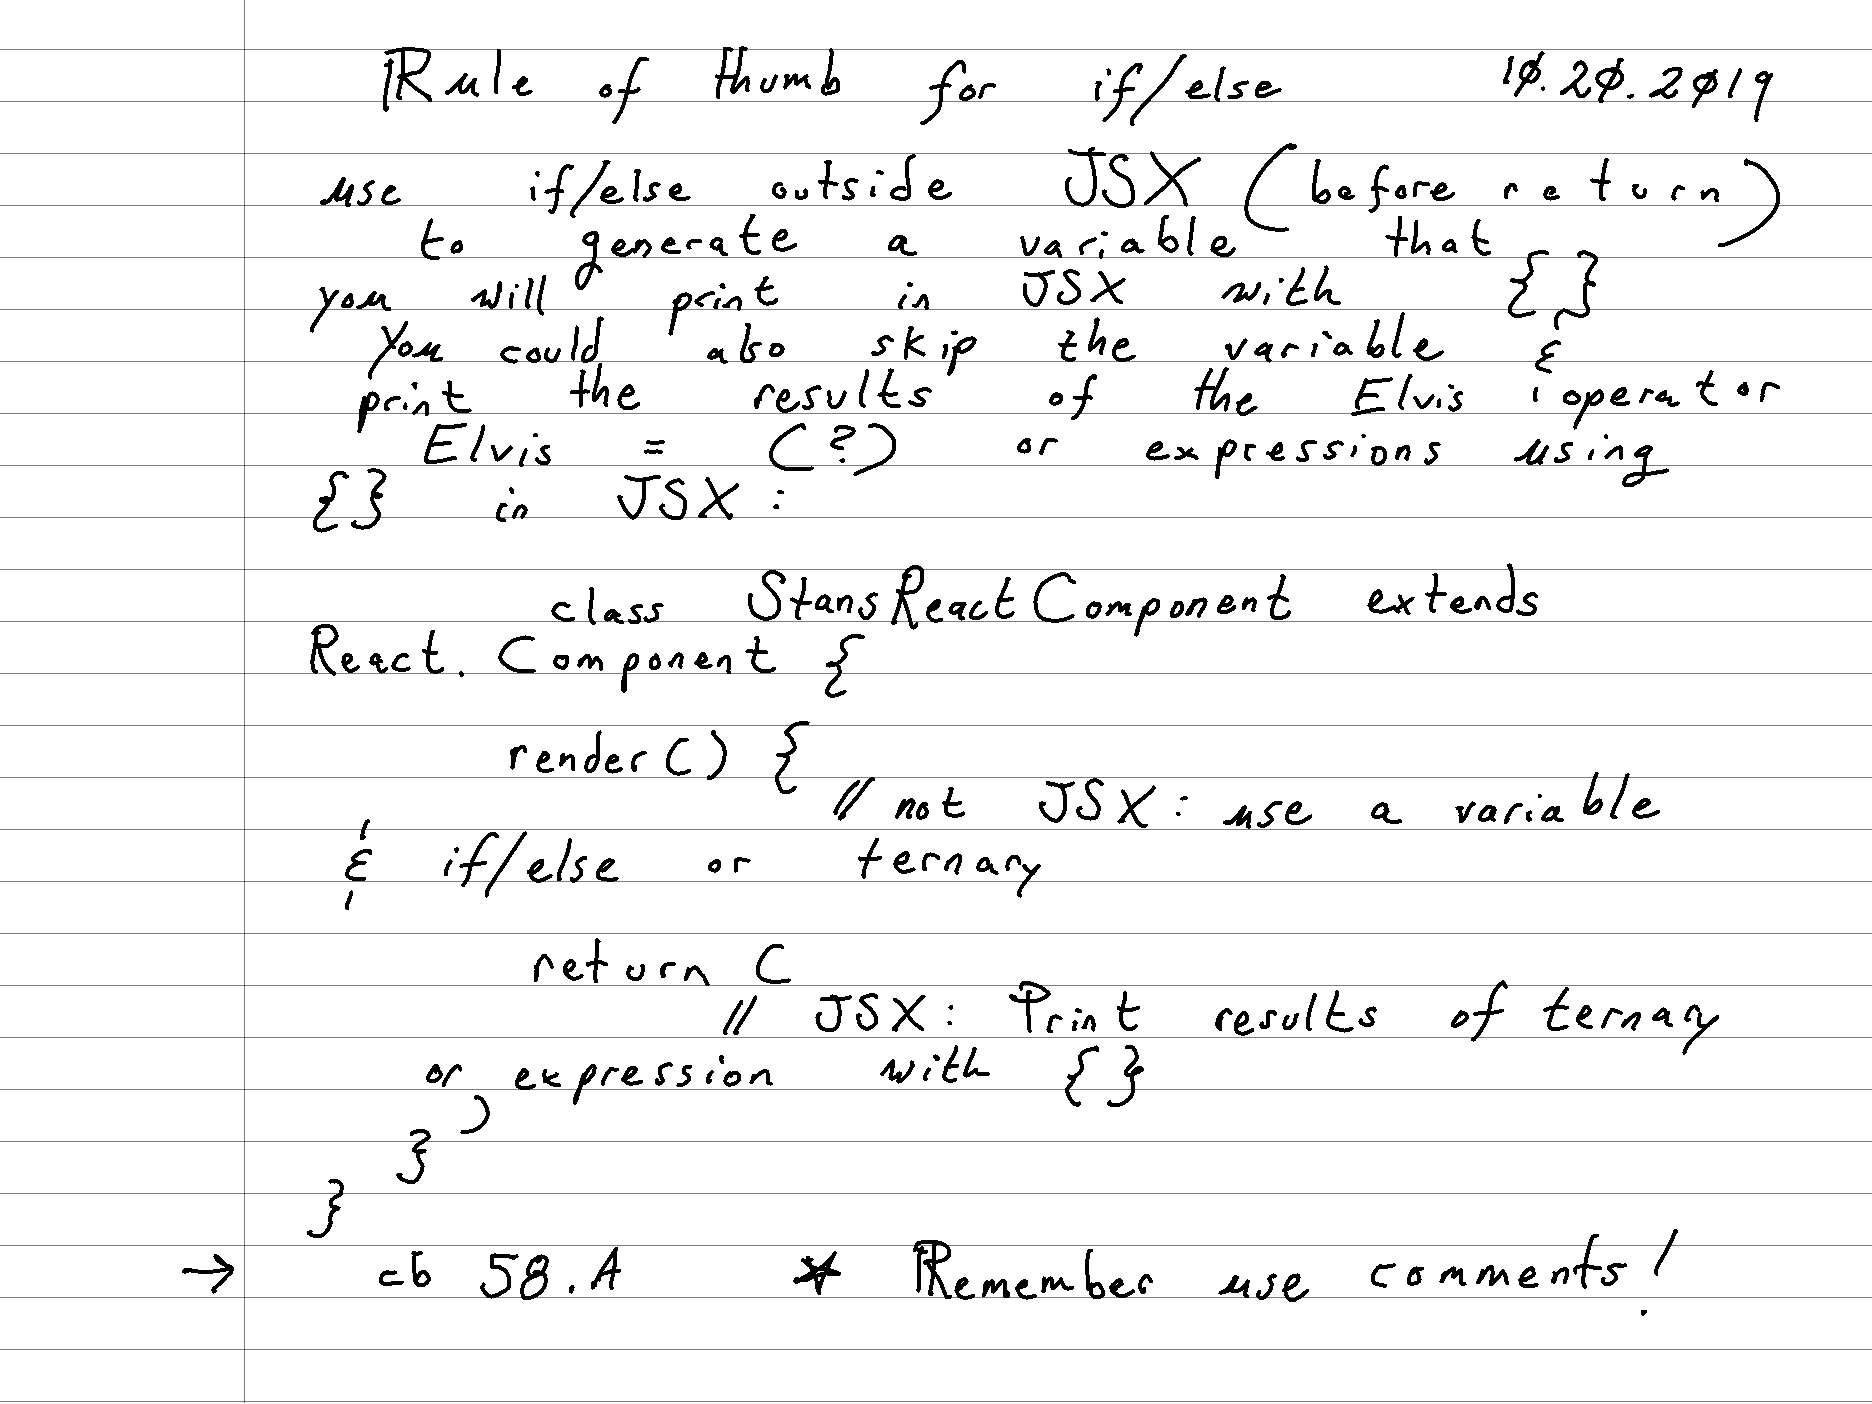 Rule of thumb for if/else 10.20.2019
use if/else outside JSX (before return)
to generate a variable that
you will print in JSX with { }
You could also skip the variable &
print the results of the Elvis operator
Elvis = (?) or expressions using
{} in JSX :
class StansReactComponent extends
React. Component {
render () {
// not JSX : use a variable
& if/else or ternary
return (
// JSX : Print results of ternary
or expression with { }
)
}
}
→ cb 58.A ★ Remember use comments!